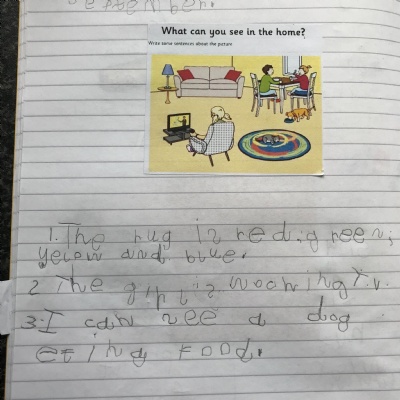 September.
What can you see in the home?
Write some sentences about the picture
1. The rug is red, green,
yelow and blue.
2 The girl is woching T.v.
3. I can see a dog
eting food.